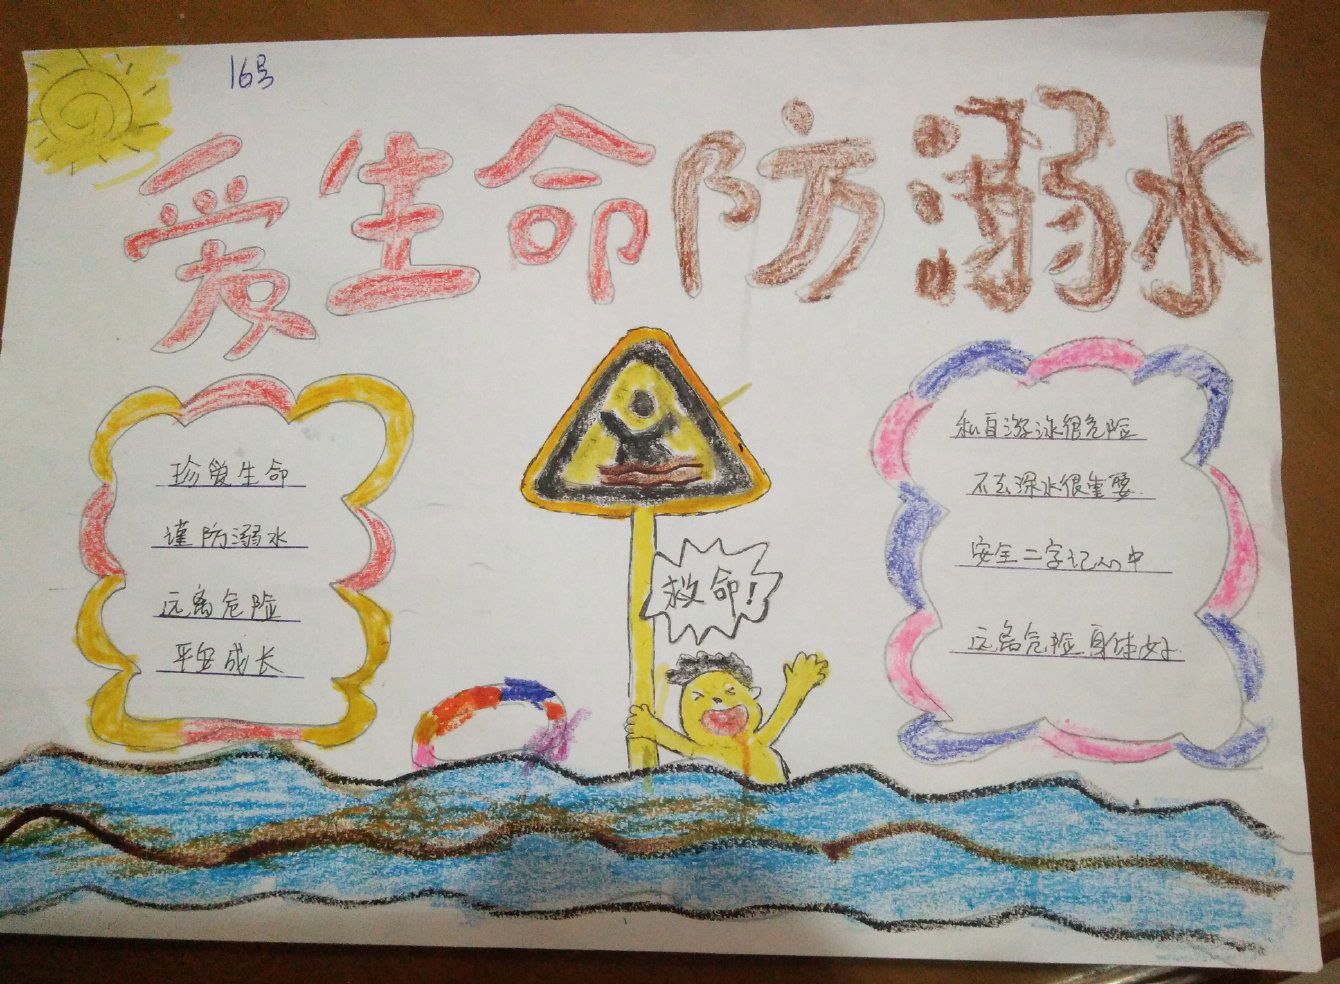 16号
爱生命防溺水
珍爱生命
谨防溺水
远离危险
平安成长
救命!
私自游泳很危险
不去深水很重要
安全二字记心中
远离危险身体好